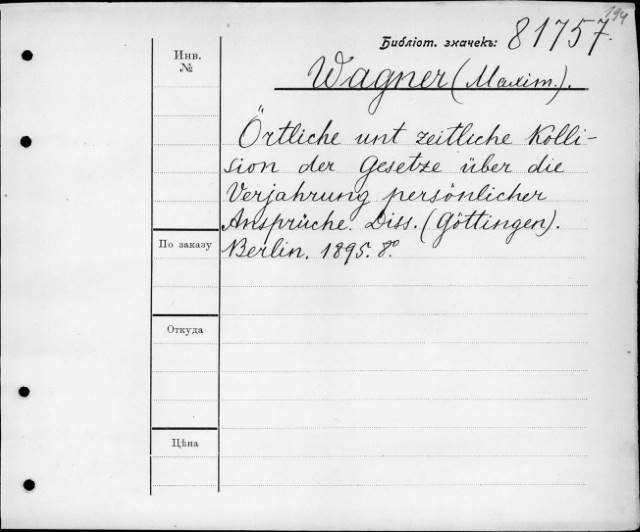 194
Библіот. значекъ: 81757.
Инв.
№
Wagner (Maxim.).
Örtliche unt zeitliche Kolli-
sion der Gesetze über die
Verjahrung persönlicher
Ansprüche. Diss. (Göttingen).
По заказу
Berlin. 1895. 8º
Откуда
Цѣна